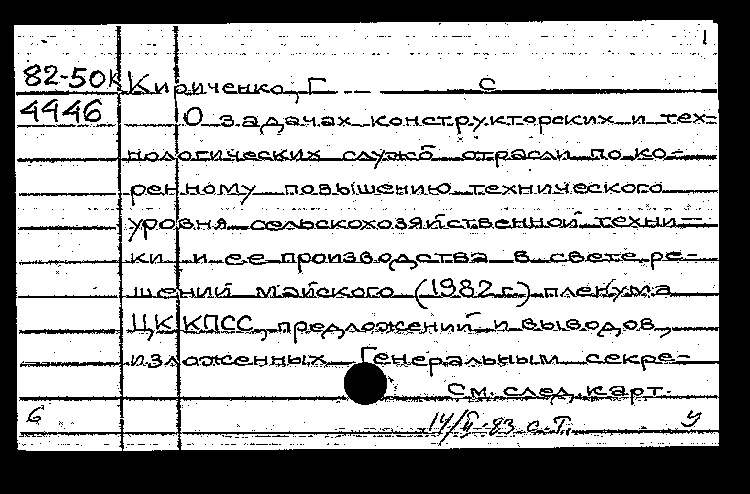 1
82-50К Кириченко, Г С
4446 О задачах конструкторских и тех-
нологических служб отрасли по ко-
ренному повышению технического
уровня сельскохозяйственной техни-
ки и ее производства в свете ре-
шений майского (1982 г.) пленума
ЦК КПСС, предложений и выводов,
изложенных Генеральным секре-
См. след. карт.
6 14/II-83 С.Т. У